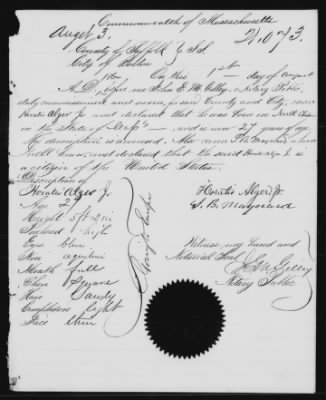 Commonwealth of Massachusetts
Augst 3. 21.073.
County of Suffolk } SS
City of Boston
On this 1st day of August
A.D. before me John E. M. Gilley, a Notary Public,
duly commissioned and sworn, for said County and City, came
Horatio Alger Jr and declared that he was born in North
in the State of and is now 27 years of age
his description is annexed. Also came S. B. Maynard to me
well known, and declared that the said Horatio Alger Jr is
a citizen of the United States.
Description of
Horatio Alger Jr Horatio Alger Jr.
Age 27 S. B. Maynard
Height 5 ft
Forehead high Witness my hand and
Eyes blue Notarial Seal
Nose
Mouth full
Chin Square Notary Public
Hair Sandy
Complexion light
Face thin